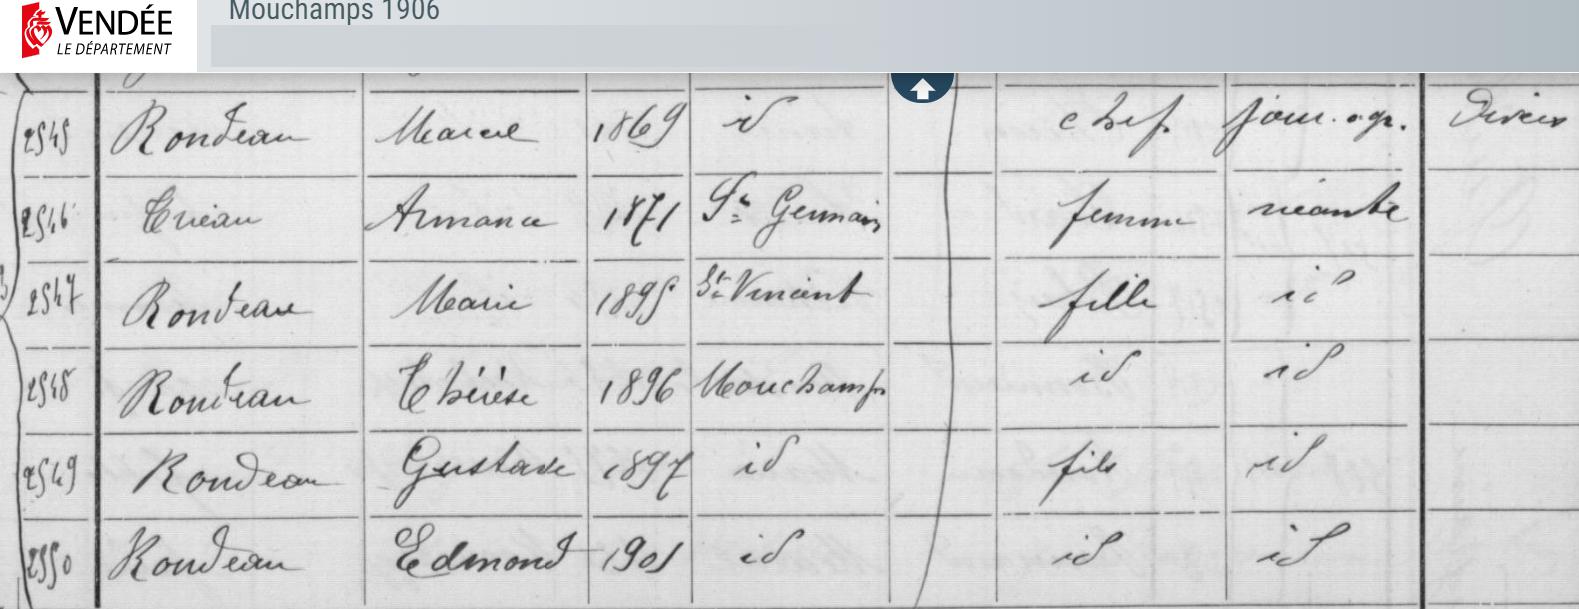 VENDÉE
LE DÉPARTEMENT
Mouchamps 1906
2545 Rondeau Marcel 1869 id chef jour. agr. Divers
2546 Trieau Armance 1871 St Germain femme néante
2547 Rondeau Marie 1895 St Vincent fille id
2548 Rondeau Thérèse 1896 Mouchamps id id
2549 Rondeau Gustave 1897 id fils id
2550 Rondeau Edmond 1901 id id id